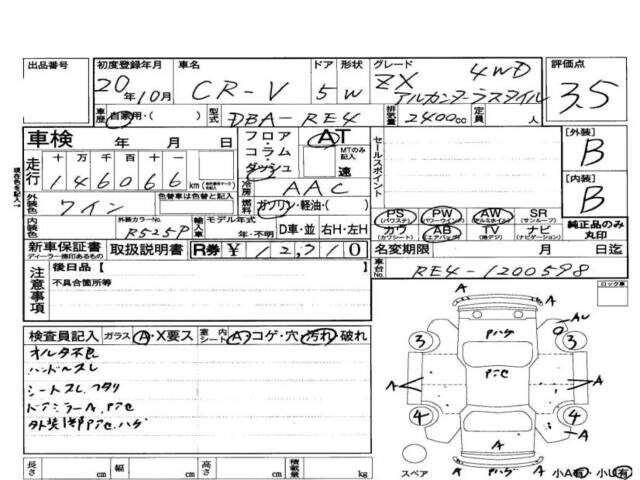 出品番号 初度登録年月 車名 ドア 形状 グレード 評価点
20年10月 CR-V 5 W ZX 4WD アルカンターラスタイル 3.5
車歴 自家用・( ) 型式 DBA-RE4 排気量 2400cc 定員 人
車検 年 月 日 フロア・コラム・ダッシュ AT MTのみ記入 速 セールスポイント [外装] B
走行 十 万 千 百 十 一
146066 km 冷房 AAC [内装] B
外装色 ワイン 色替車は色替と記入 燃料 ガソリン・軽油・( )
PS (パワステ) PW (パワーウインド) AW (アルミホイル) SR (サンルーフ) 純正品のみ丸印
カワ (カワシート) AB (エアバック) TV (地デジ) ナビ (ナビゲーション)
内装色 外装カラーNo. R525P 輸入車 モデル年式 年・不明 D車・並 右H・左H
新車保証書 ディーラー捺印あるもの 取扱説明書 R券 ¥ 12,310 名変期限 月 日迄
車台No. RE4-1200598
注意事項 後日品 [ ] ロック車
不具合箇所等
検査員記入 ガラス A・X要ス 室内シート A・コゲ・穴・汚れ・破れ
オルタ不良
ハンドルスレ
シートスレ、フタリ
ドアミラーA、アセ
外装1部アセ、ハゲ
A A A
ハゲ AU
3 3
アセ
A A
4 4
A A
A ハゲ A
スペア 小A有・小U有
長さ cm 幅 cm 高さ cm 積載量 kg
現在色を記入→